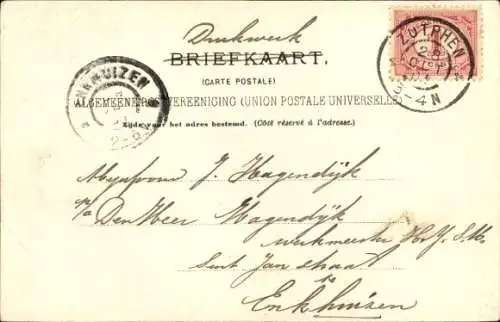 Drukwerk
BRIEFKAART.
(CARTE POSTALE)
ALGEMEENE POSTVEREENIGING (UNION POSTALE UNIVERSELLE)
Zijde voor het adres bestemd. (Côté réservé à l'adresse.)
ZUTPHEN
3-4N
NKHUIZEN
J. Hagendijk
p/a Den Heer Hagendijk
werkmeester H. S. M.
Sint Jan straat
te
Enkhuizen